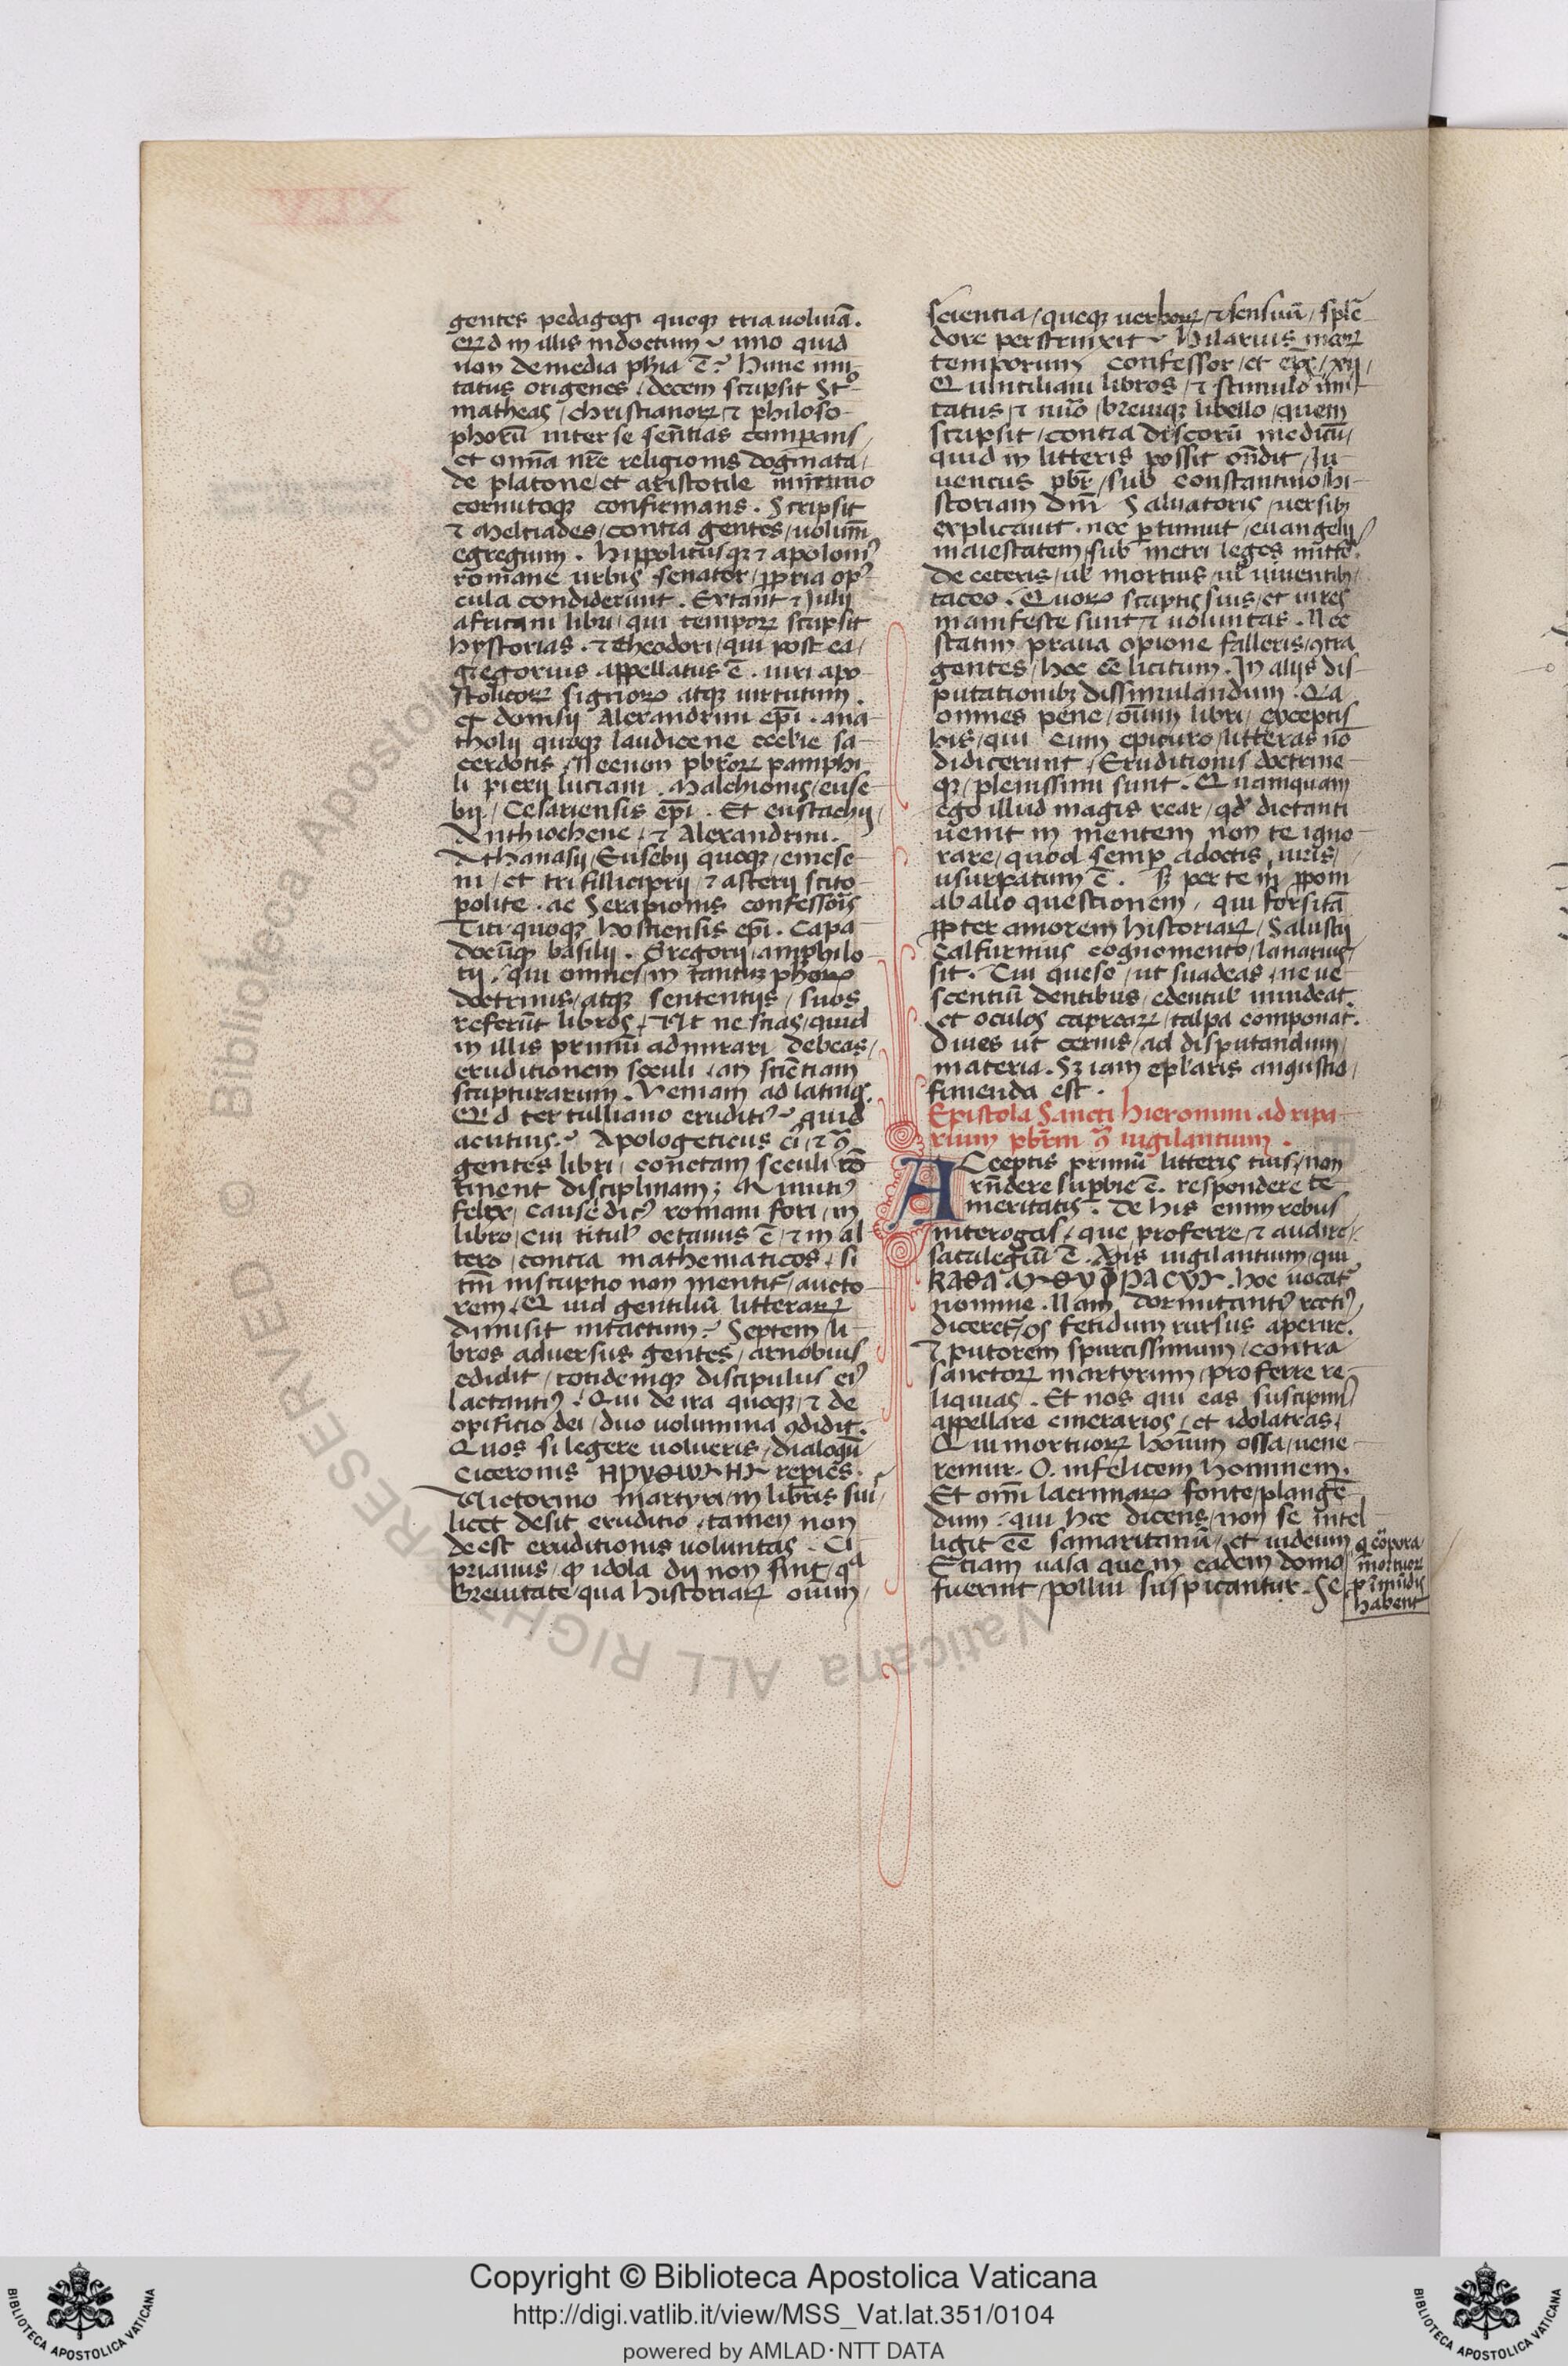 gentes pedagogi quoqꝫ tria uolumīa.
Qͥd in illis indoctum? imo quid
non de media phīa ē? Hunc imi-
tatus origenes, decem scripsit Stͦ-
matheas, christianoꝝ ⁊ philoso-
phorū inter se sentīas comparans,
et omīa nrē religionis dogmata,
de platone, et aristotile numenio
cornutoqꝫ confirmans. Scripsit
⁊ Meltiades, contra gentes, uolum̄
egregium. Hippolitusqꝫ ⁊ apoloniꝰ
romane urbis senator, ꝓpria opꝰ-
cula condiderunt. Extant ⁊ Julij
africani libri, qui tempoꝝ scripsit
hystorias. ⁊ theodori, qui post ea,
gregorius appellatus ē. uiri apo-
stolicoꝝ signoꝝ atqꝫ uirtutum.
et dionisij Alexandrini ep̄i. ana-
tholij quoqꝫ laudicene ecclīe sa-
cerdotis, Necnon pbr̄oꝝ pamphi-
li pierij luciani. Malchionis, euse
bij, Cesariensis ep̄i. Et eustachij,
Anthiochene, ⁊ Alexandrini.
Athanasij, Eusebij quoqꝫ, emese-
ni, et trifilliciprij, ⁊ asterij scito-
polite. ac Serapionis confessoris
Titi quoqꝫ hostiensis ep̄i. Capa
docūqꝫ basilij. Gregorij, amphilo-
tij. qui omnes, in tantuꝫ ph̄oꝝ
doctrinis, atqꝫ sententijs, suos
referūt libros, Ut nescias, quid
in illis primū admirari debeas,
eruditionem seculi, an scīentiam
scripturarum. Veniam ad latinos.
Qͥd tertulliano eruditiꝰ? quid
acutius? Apologeticus eī, ⁊ ↄ̄
gentes libri, cunctam seculi cō
tinent disciplinam; Minutiꝰ
felix, causedicꝰ romani fori, in
libro, cui titulꝰ octauus ē, ⁊ in al
tero, contra mathematicos, si
tm̄ inscriptio non mentit᷑, aucto-
rem, Quid gentiliū litterarꝝ
dimisit intactum? Septem li-
bros aduersus gentes, arnobius
edidit, totidemqꝫ discipulus eiꝰ
lactantiꝰ. Qui de ira quoqꝫ, ⁊ de
opificio dei, duo uolumina ꝯdidit.
Quos si legere uolueris, dialogū
Ciceronis repies.
Uictorino martyri, in libris suis,
licet desit eruditio, tamen non
deest eruditionis uoluntas. Ci
prianus, ꝙ idola dij non sint, qͣ
breuitate, qua historiarꝝ oīum,
scientia, queqꝫ uerboꝝ, ⁊ sensuū, splē
dore perstrinxit? Hilarius meoꝝ
temporum confessor, et ep̄c, xij,
Quintiliani libros, ⁊ stimulo imi-
tatus, ⁊ nūo, breuiqꝫ libello, quem
scripsit, contra discorū medicū,
quid in litteris possit on̄dit, Ju-
uencus pbr̄, sub Constantino, hi-
storiam dm̄ Saluatoris, uersibꝫ
explicauit. nec ꝑtimuit, euangelij
maiestatem, sub metri leges mittē.
De ceteris, ul̓ mortuis, ul̓ uiuentibꝫ,
taceo. Quoꝝ scriptis suis, et uires
manifeste sunt, ⁊ uoluntas. Nec
statim praua opione falleris, ꝯtra
gentes, hoc eē licitum. In alijs dis-
putationibꝫ dissimulandum. Qͥa
omnes pene, oīum libri, exceptis
his, qui cum epicuro, litteras nō
didicerunt, Eruditionis doctrine-
qꝫ, plenissimi sunt. Quamquam
ego illud magis rear, qd̓ dictanti
uenit in mentem non te igno-
rare, quod semꝑ adoctis uiris,
usurpatum ē. Sꝫ per te m̄ ꝓponi
ab alio questionem, qui forsitā
ꝓpter amorem historiarꝝ, Salustij
Calfurnius cognomento, lanarius,
sit. Cui queso, ut suadeas, ne ue-
scentiū dentibus, edentul̓ inuideat.
et oculos caprearꝝ, talpa componat.
Diues ut cernis, ad disputandum,
materia. Sꝫ iam epl̓aris angustia,
finienda est.
Epistola Sancti Hieronimi ad ripa-
rium pbr̄m ↄ̄ uigilantium.
Acceptis primū litteris tuis, non
rn̄dere supbie ē. respondere te-
meritatis. De his enim rebus
interogas, que proferre, ⁊ audire,
sacrilegiū ē. Ais uigilantium, qui
hoc uocat᷑
nomine. Nam dormitantiꝰ rectiꝰ,
diceret᷑, os fetidum rursus aperire.
⁊ putorem spurcissimum, contra
sanctoꝝ martyrum, proferre re-
liquias. Et nos qui eas suscipimꝰ
appellare cinerarios, et idolatras,
Qui mortuoꝝ hoīum ossa, uene-
remur. O. infelicem hominem.
Et omī lacrimaꝝ fonte, plangē
dum. qui hec dicens, non se intel
ligit eē samaritanū, et iudeum
q̄ corpora
mortuoꝝ
ꝑ imūdis
habent
Etiam uasa que in eadem domo
fuerint, pollui suspicantur. Se
Copyright © Biblioteca Apostolica Vaticana
http://digi.vatlib.it/view/MSS_Vat.lat.351/0104
powered by AMLAD·NTT DATA
BIBLIOTECA APOSTOLICA VATICANA
BIBLIOTECA APOSTOLICA VATICANA
Biblioteca Apostolica Vaticana ALL RIGHTS RESERVED ©